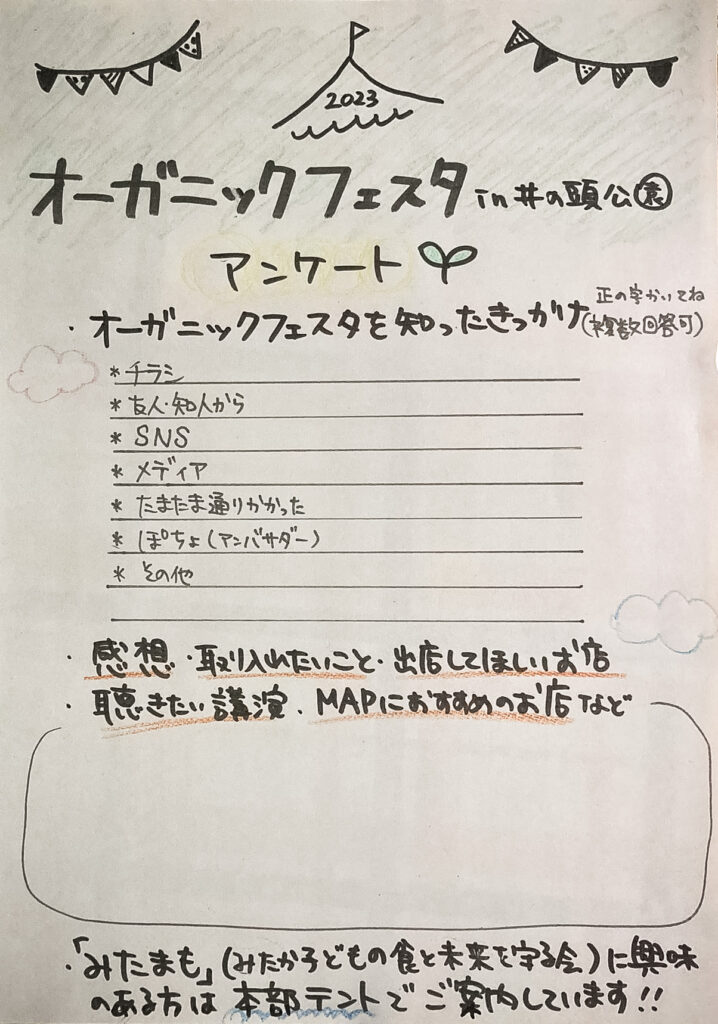 2023
オーガニックフェスタ in 井の頭公園
アンケート
正の字かいてね
・オーガニックフェスタを知ったきっかけ(複数回答可)
* チラシ
* 友人・知人から
* SNS
* メディア
* たまたま通りかかった
* ぽちょ(アンバサダー)
* その他
・感想・取り入れたいこと・出店してほしいお店
・聴きたい講演、MAPにおすすめのお店など
・「みたまも」(みたか子どもの食と未来を守る会)に興味
のある方は本部テントでご案内しています!!